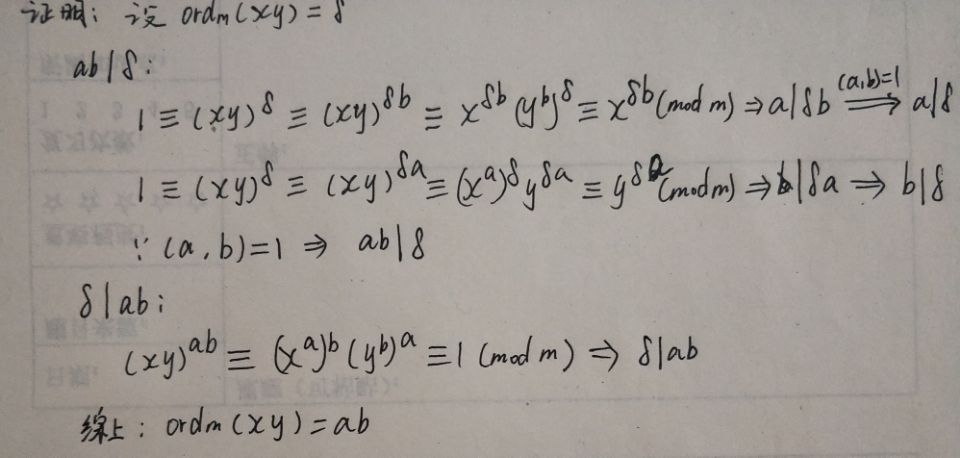 证明：设 ordm(xy) = δ
ab|δ：
1 ≡ (xy)^δ ≡ (xy)^{δb} ≡ x^{δb} (y^b)^δ ≡ x^{δb} (mod m) ⇒ a|δb \xRightarrow{(a,b)=1} a|δ
1 ≡ (xy)^δ ≡ (xy)^{δa} ≡ (x^a)^δ y^{δa} ≡ y^{δa} (mod m) ⇒ b|δa ⇒ b|δ
∵ (a,b)=1 ⇒ ab|δ
δ|ab：
(xy)^{ab} ≡ (x^a)^b (y^b)^a ≡ 1 (mod m) ⇒ δ|ab
综上：ordm(xy) = ab